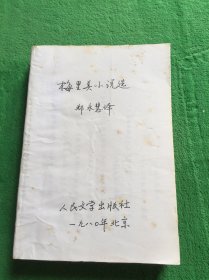 梅里美小说选
郑永慧译
人民文学出版社
一九八〇年北京